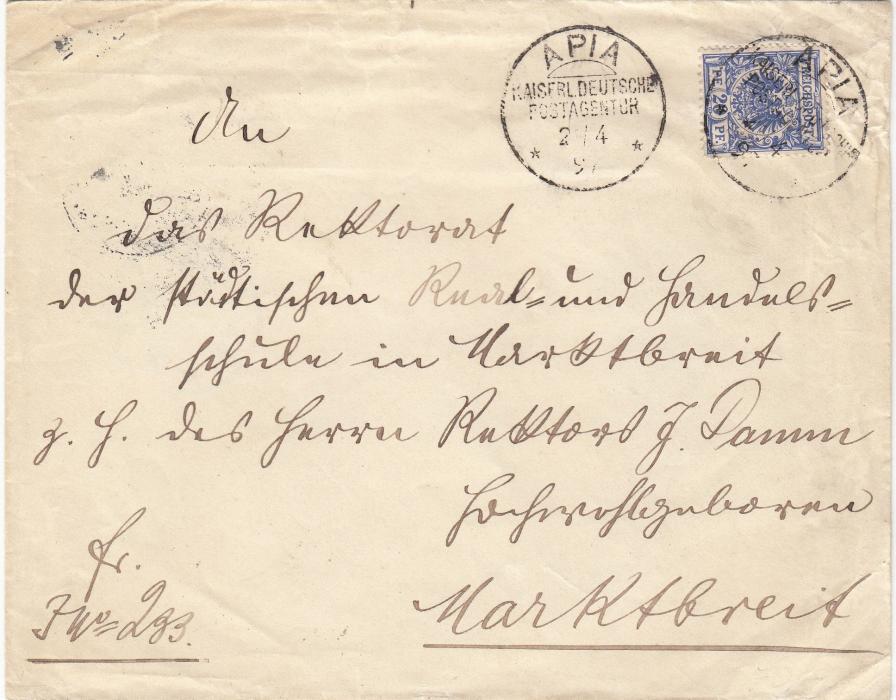 APIA
KAISERL. DEUTSCHE
POSTAGENTUR
2 /4
97
APIA
REICHSPOST
PF. 20 PF.
An
das Rektorat
der städtischen Real- und Handels-
schule in Marktbreit
z. H. des Herrn Rektors J. Damm
Hochwohlgeboren
fr.
J No 233.
Marktbreit